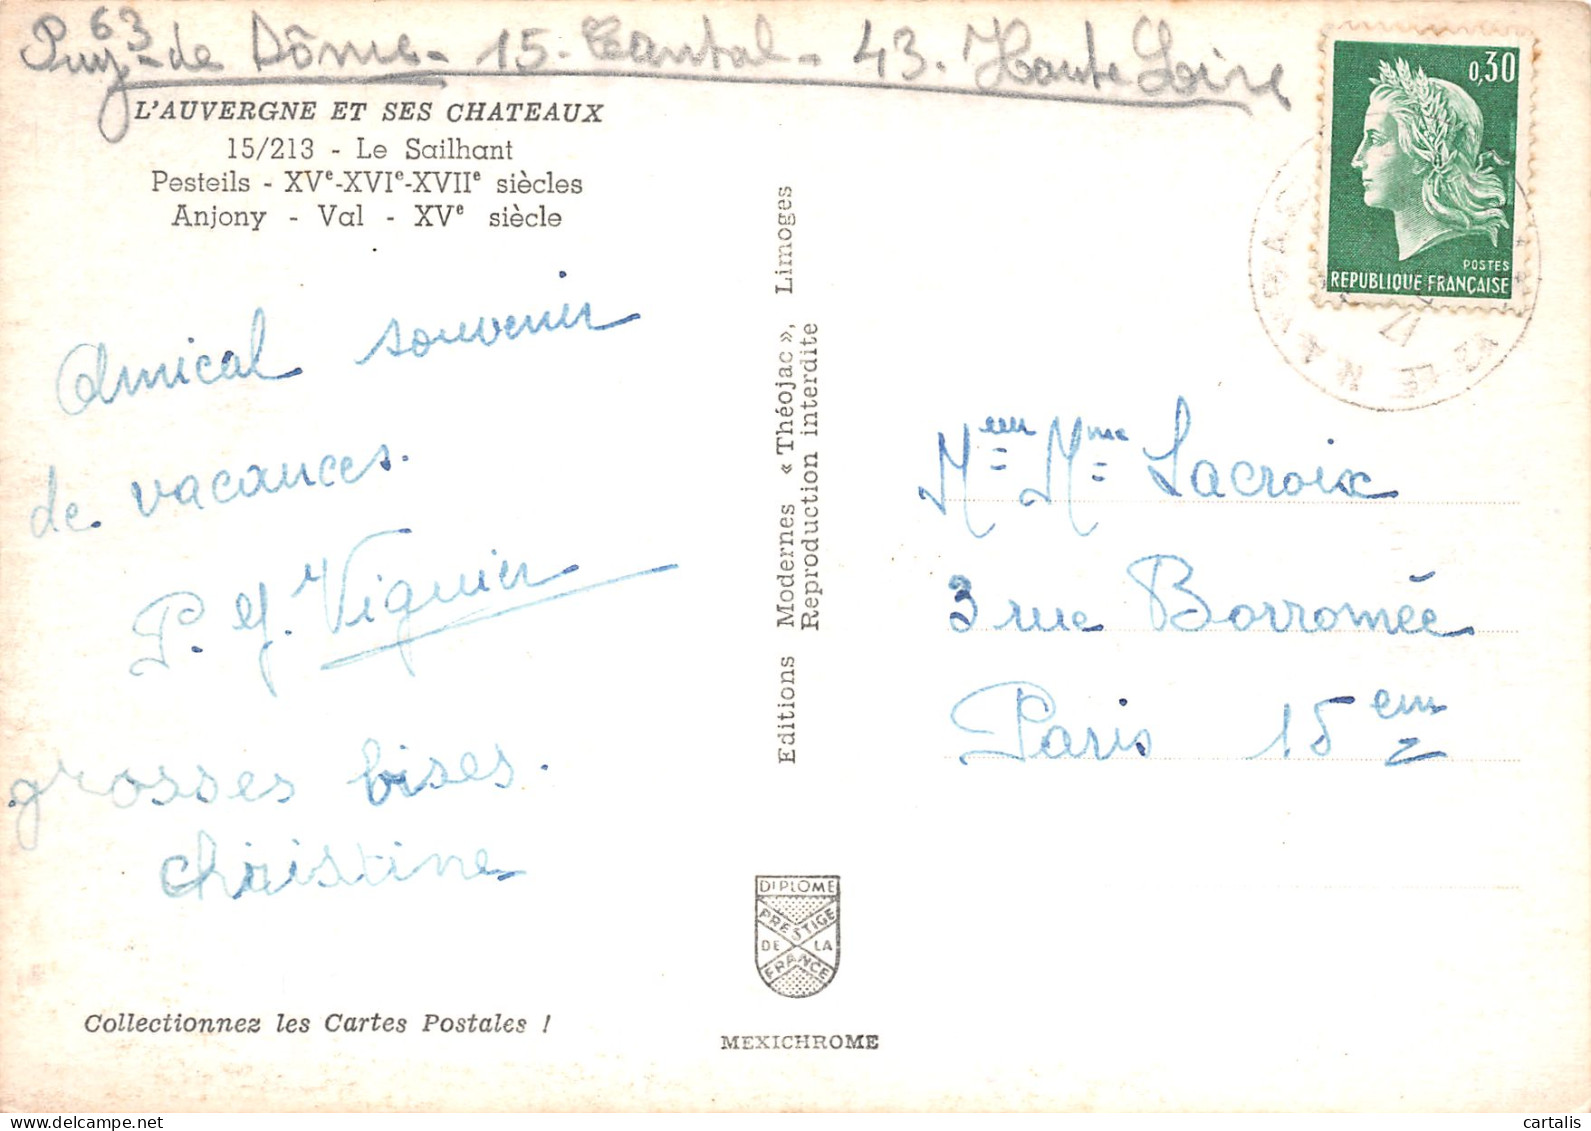 63
Puy-de Dôme - 15 - Cantal - 43. Haute Loire
L'AUVERGNE ET SES CHATEAUX
15/213 - Le Sailhant
Pesteils - XVe-XVIe-XVIIe siècles
Anjony - Val - XVe siècle
Amical souvenir
de vacances.
P. Viguier
grosses bises.
Christine
Collectionnez les Cartes Postales !
Editions Modernes « Théojac », Limoges
Reproduction interdite
DIPLOME
PRESTIGE
DE LA
FRANCE
MEXICHROME
0,30
POSTES
REPUBLIQUE FRANÇAISE
17
Meur Mme Lacroix
3 rue Borromée
Paris 15em
cartalis
delcampe.net